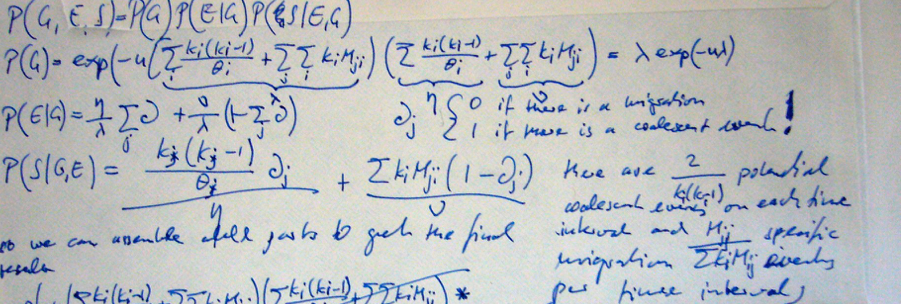 P(G, E, S) = P(G) P(E|G) P(S|E,G)
P(G) = exp(-u(∑_i k_i(k_i-1)/θ_i + ∑_j ∑_i k_i M_ji)) (∑_i k_i(k_i-1)/θ_i + ∑_j ∑_i k_i M_ji) = λ exp(-uλ)
λ η ν
P(E|G) = η/λ ∑_j ∂ + ν/λ (1-∑_j ∂) ∂_j { 0 if there is a migration
1 if there is a coalescent event!
P(S|G,E) = k_j(k_j-1)/θ_j ∂_j + ∑ k_i M_ji (1-∂_j)
η ν
there are 2/k_i(k_i-1) potential
coalescent events on each time
interval and M_ij/∑k_i M_ij specific
migration events
per time interval,
so we can assemble all parts to get the final
result
(∑ k_i(k_i-1) (∑ k_i(k_i-1) + ∑∑ k_i M_ij) *